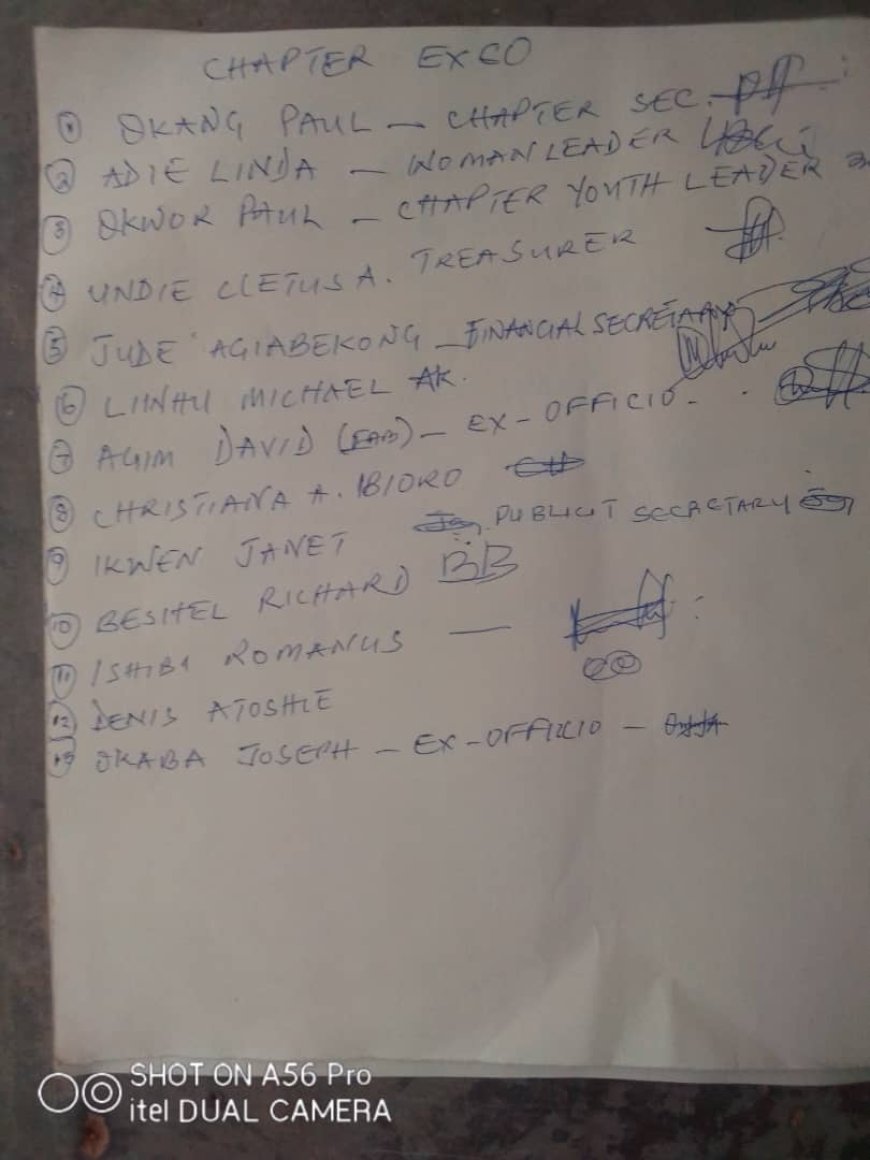 CHAPTER EXCO
1 OKANG PAUL — CHAPTER SEC.
2 ADIE LINDA — WOMAN LEADER
3 OKWOR PAUL — CHAPTER YOUTH LEADER
4 UNDIE CLETUS A. TREASURER
5 JUDE AGIABEKONG — FINANCIAL SECRETARY
6 MICHAEL AK.
7 AGIM DAVID — EX-OFFICIO -
8 CHRISTIANA A. IBIORO
9 IKWEN JANET PUBLICIT SECRETARY
10 BESHEL RICHARD BB
11 ISHIBI ROMANUS —
12 DENIS ATOSHIE
13 OKABA JOSEPH — EX-OFFICIO —
SHOT ON A56 Pro
itel DUAL CAMERA